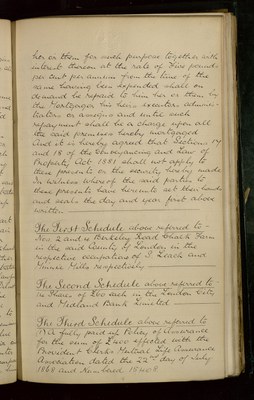 her or them for such purpose together with
interest thereon at the rate of Five pounds
per cent per annum from the time of the
same having been expended shall on
demand be repaid to him her or them by
the Mortgagor his heirs executors adminis-
trators or assigns and until such
repayment shall be a charge upon all
the said premises hereby mortgaged
And it is hereby agreed that Sections 17
and 18 of the Conveyancing and Law of
Property Act 1881 shall not apply to
these presents or the security hereby made
In witness whereof the said parties to
these presents have hereunto set their hands
and seals the day and year first above
written
The First Schedule above referred to
Nos 2 and Berkeley Road Chalk Farm
in the said County of London in the
respective occupations of S. Leach and
Mills respectively
The Second Schedule above referred to
Shares of £60 each in the London City
and Midland Bank Limited
The Third Schedule above referred to
fully paid up Policy of Assurance
for the sum of effected with the
Provident Clerks Mutual Life Assurance
Association dated the day of July
1868 and Numbered